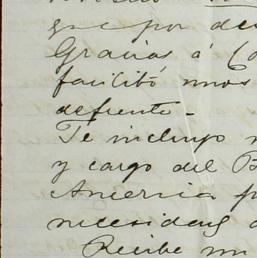 que por
Gracias á
facilitó unos
defrente.
Te incluyo
y cargo del B
America p
necesidens d
Recibe mi